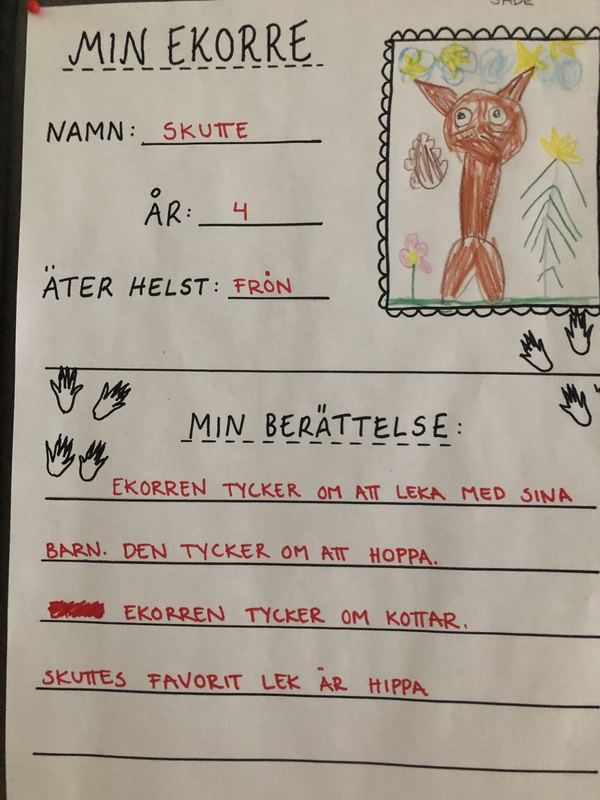 MIN EKORRE
NAMN: SKUTTE
ÅR: 4
ÄTER HELST: FRÖN
MIN BERÄTTELSE:
EKORREN TYCKER OM ATT LEKA MED SINA
BARN. DEN TYCKER OM ATT HOPPA.
EKORREN TYCKER OM KOTTAR.
SKUTTES FAVORIT LEK ÄR HIPPA